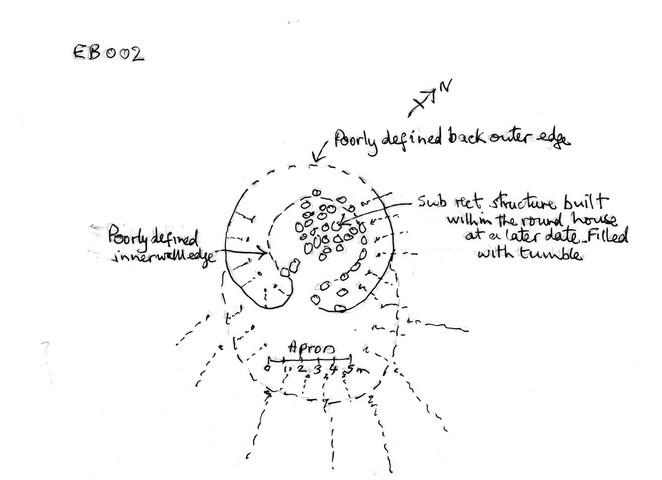 EB002
N
Poorly defined back outer edge
Sub rect structure built
within the round house
at a later date. Filled
with tumble
Poorly defined
inner wall edge
Apron
0 1 2 3 4 5m